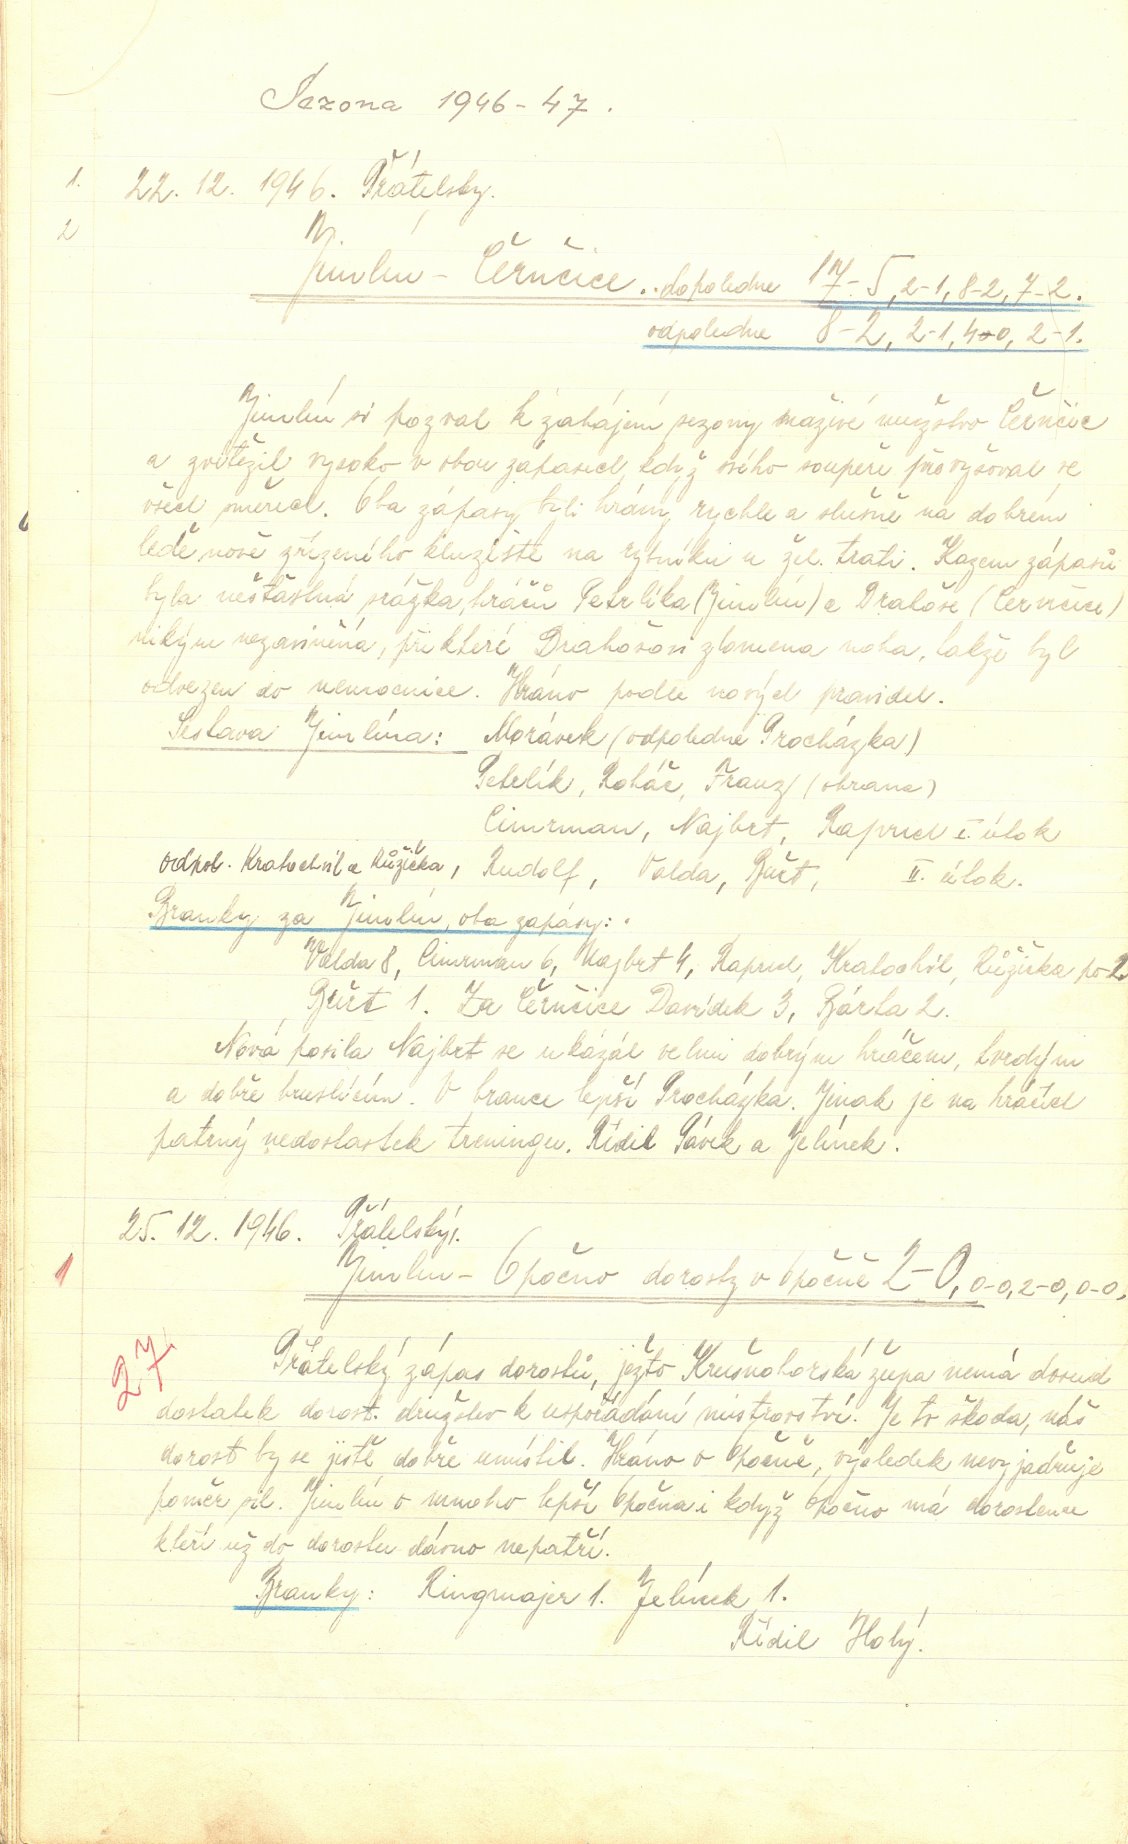 Sezona 1946-47.
1. 22. 12. 1946. Přátelsky.
2
Jimlín - Černčice .. dopoledne 17-5, 2-1, 8-2, 7-2.
odpoledne 8-2, 2-1, 4-0, 2-1.
Jimlín si pozval k zahájení sezony snaživé mužstvo Černčic
a zvítězil vysoko v obou zápasech, když svého soupeře převyšoval ve
všech směrech. Oba zápasy byli hrány rychle a slušně na dobrém
ledě nově zřízeného kluziště na rybníku u žel. trati. Kazem zápasů
byla nešťastná srážka hráčů Petrlíka (Jimlín) a Drahoše (Černčice)
nikým nezaviněná, při které Drahošovi zlomena noha, takže byl
odvezen do nemocnice. Hráno podle nových pravidel.
Sestava Jimlína: Morávek (odpoledne Procházka)
Petrlík, Roháč, Franz (obrana)
Cimrman, Najbrt, Kaprud I. útok
odpol. Kratochvíl a Růžička, Rudolf, Valda, Bušt, II. útok.
Branky za Jimlín, oba zápasy:
Valda 8, Cimrman 6, Najbrt 4, Kaprud, Kratochvíl, Růžička po 2
Bušt 1. Za Černčice Davídek 3, Bárta 2.
Nová posila Najbrt se ukázal velmi dobrým hráčem, tvrdým
a dobře bruslícím. V brance lepší Procházka. Jinak je na hráčích
patrný nedostatek treningu. Řídil Pávek a Jelínek.
25. 12. 1946. Přátelský.
1 Jimlín - Opočno dorosty v Opočně 2-0, 0-0, 2-0, 0-0.
27 Přátelský zápas dorostů, ježto Krušnohorská župa nemá dosud
dostatek dorost. družstev k uspořádání mistrovství. Je to škoda, náš
dorost by se jistě dobře umístil. Hráno v Opočně, výsledek nevyjadřuje
poměr sil. Jimlín o mnoho lepší Opočna i když Opočno má dorostence
kteří už do dorostu dávno nepatří.
Branky: Ringmajer 1. Jelínek 1.
Řídil Holý.